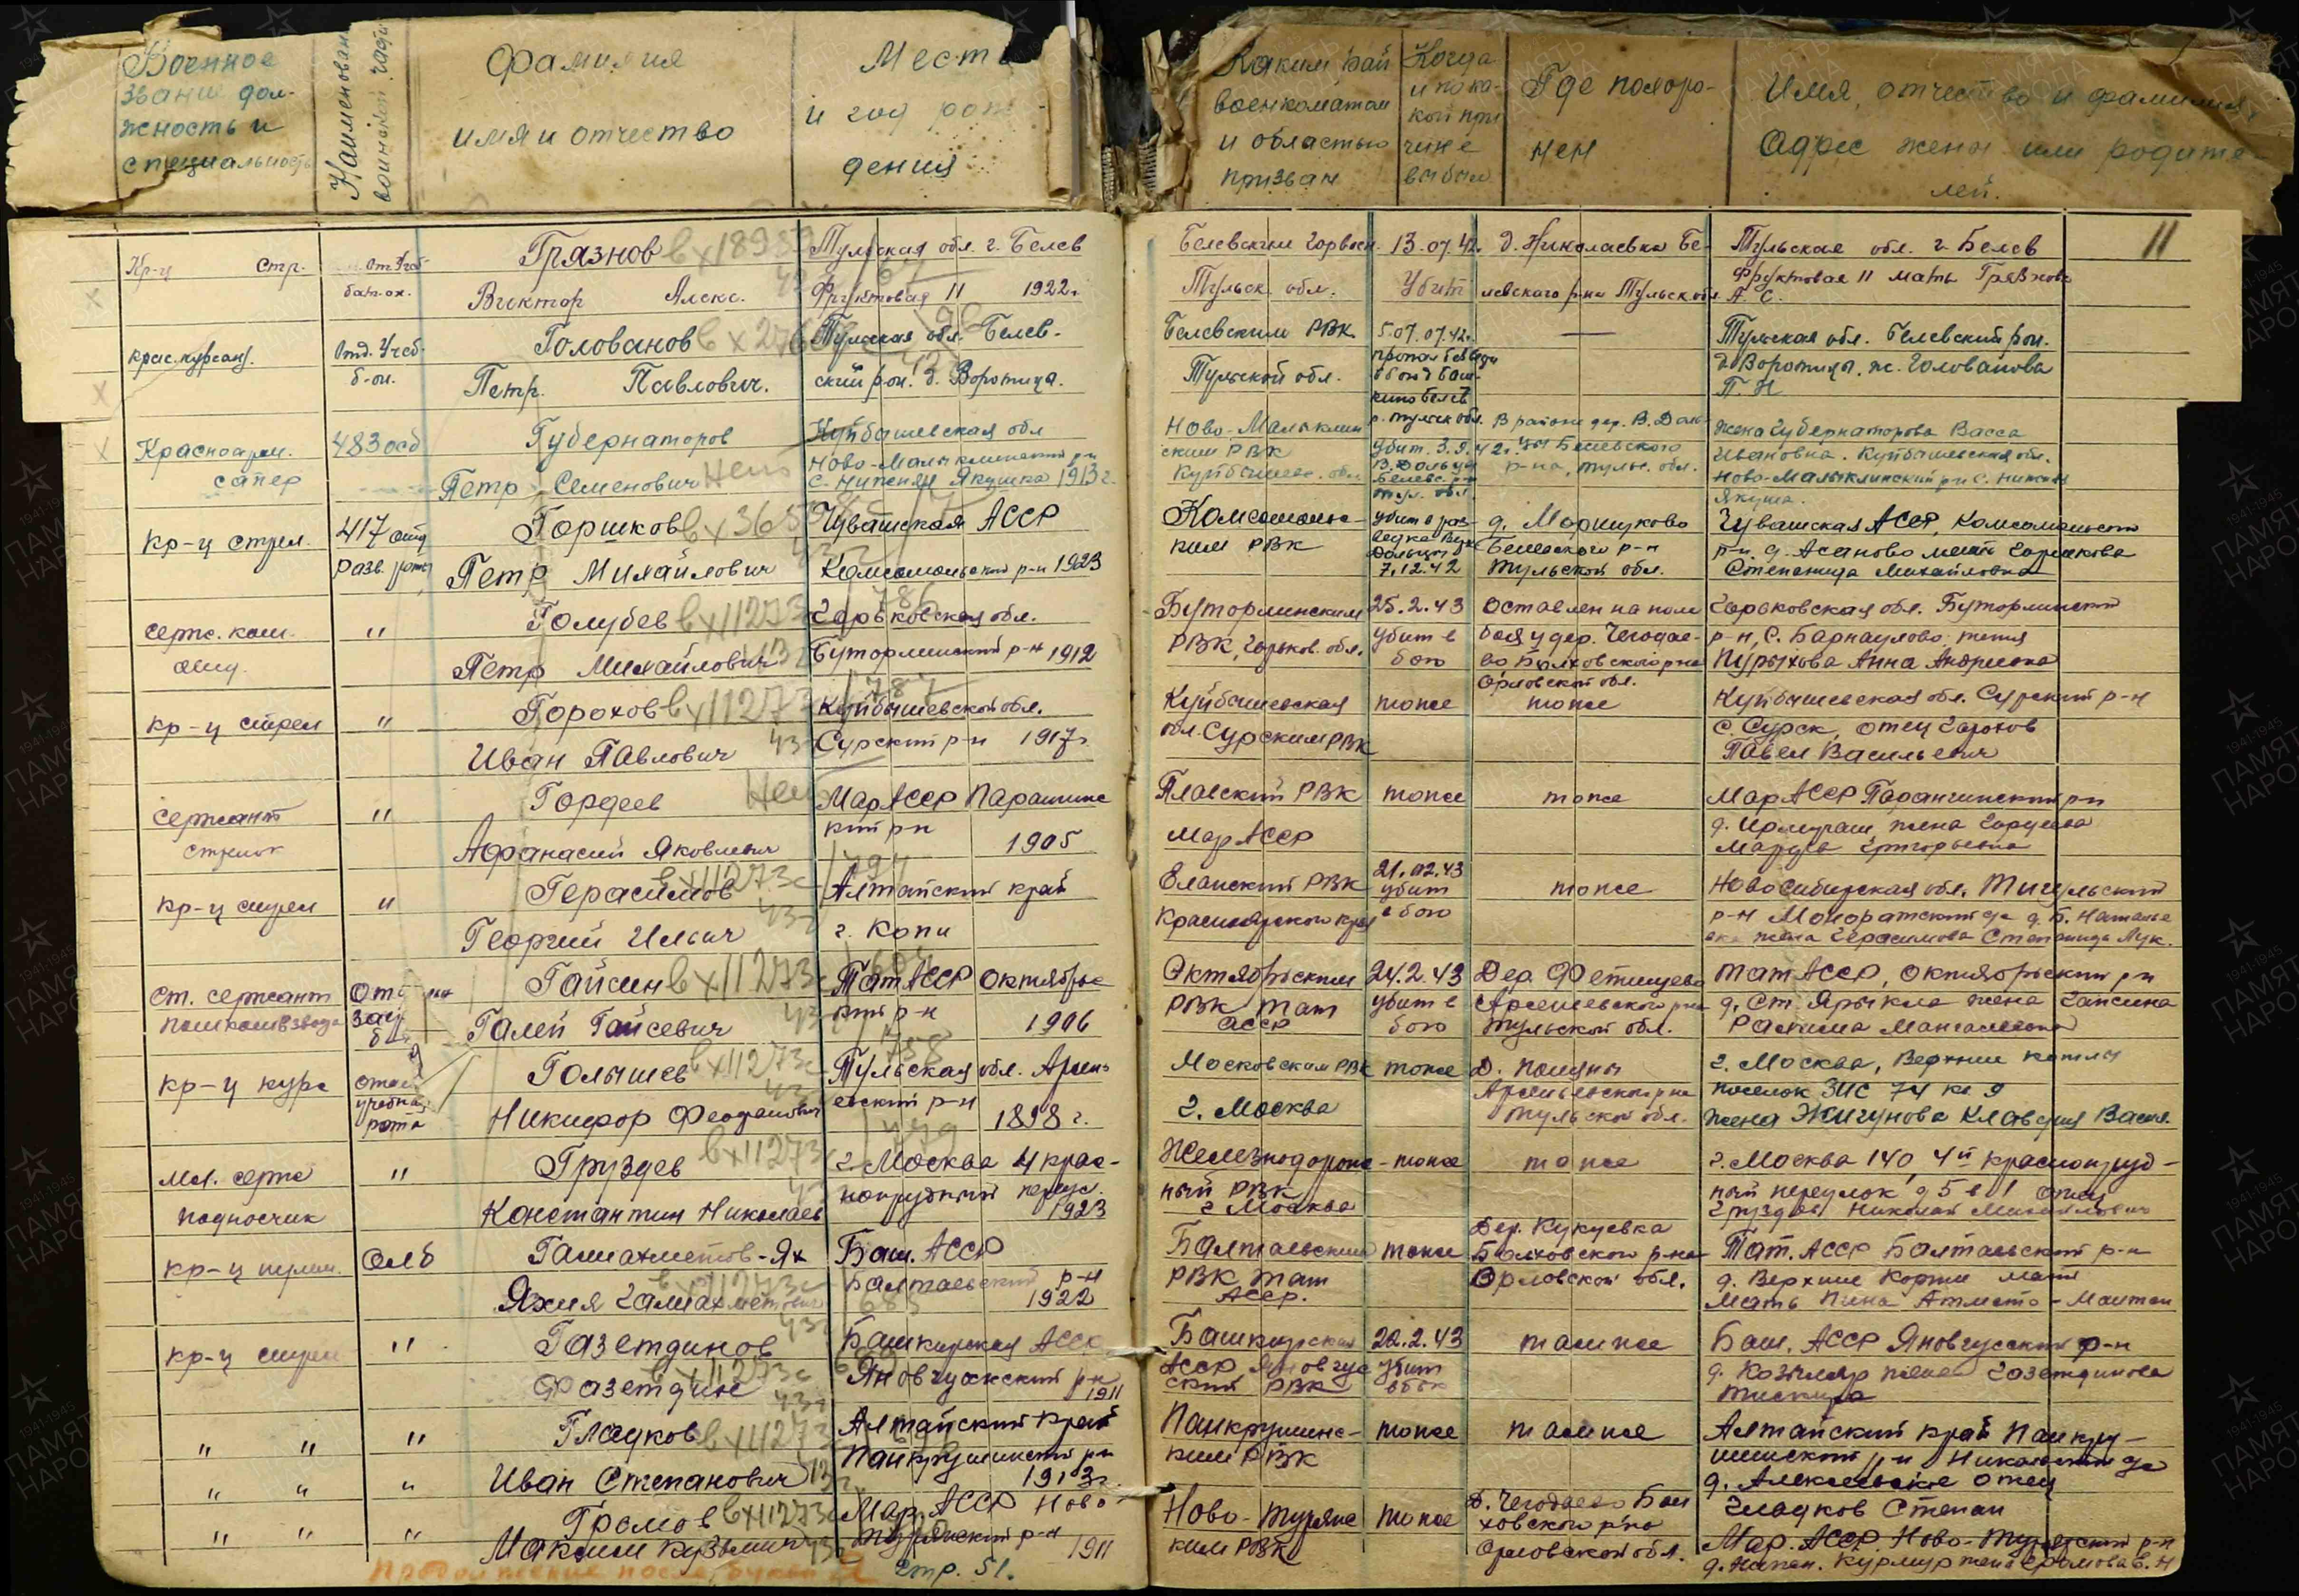 Военное
звание дол-
жность и
специальность
Наименован
воинской части
Фамилия
имя и отчество
Мест
и год рож-
дения
Каким рай
военкоматом
и областью
призван
Когда
и по ка-
кой при
чине
выбыл
Где похоро-
нен
Имя, отчество и фамилия,
Адрес жены или родите-
лей.
11
Кр-ц стр.
Отд. Учеб.
бат-он.
Грязнов вх 1898
Виктор Алекс.
Тульская обл. г. Белев
Фруктовая 11 1922г.
Белевским Горвоен.
Тульск. обл.
13.07.42г.
Убит
д. Николаевка Бе-
левского р-на Тульск обл.
Тульская обл. г. Белев
Фруктовая 11 мать Грязнова
А. С.
крас. курсант.
Отд. Учеб.
б-он.
Голованов
Петр. Павлович.
Тульская обл. Белев-
ский рон. д. Воротица.
Белевским РВК
Тульской обл.
5.07.07.42г.
Тульская обл. Белевский рон.
д. Воротицы. ж. Голованова
П. Н
Красноарм.
сапер
483 осб
Губернаторов
Петр Семенович Нет
Куйбышевская обл
Ново-Малыклинский р-н
с. Нижняя Якушка 1913 г.
Ново-Малыклин
ским РВК
Куйбышевс. обл.
Убит. 3.9.42г.
В. Дольцы
Белевс. р-н
Тул. обл.
В районе дер. В. Доль-
цы Белевского
р-на, Тульс. обл.
Жена Губернаторова Васса
Ивановна. Куйбышевская обл.
Ново-Малыклинский р-н с. Нижняя
Якушка.
Кр-ц стрел.
417 отд
разв. роты
Горшков вх 365
Петр Михайлович
Чувашская АССР
Комсомольский р-н 1923
Комсомольс-
ким РВК
7.12.42
д. Мармуково
Белевского р-н
Тульской обл.
Чувашская АССР, Комсомольский
р-н, д. Асаново мать Горшкова
Степанида Михайловна
серж. ком.
отд.
"
Голубев вх 11273с
Петр Михайлович
786
Горьковская обл.
Бутурлинский р-н 1912
Бутурлинским
РВК, Горьков. обл.
25.2.43
убит в
бою
оставлен на поле
боя у дер. Чегодае-
во Болховского р-на
Орловской обл.
Горьковская обл. Бутурлинский
р-н, с. Барнаулово, жена
Пурыхова Анна Андреевна
кр-ц стрел
"
Горохов вх 11273
Иван Павлович
787
Куйбышевской обл.
Сурский р-н 1917г.
Куйбышевская
обл. Сурским РВК
тоже
тоже
Куйбышевская обл. Сурский р-н
с. Сурск, отец Горохов
Павел Васильевич
сержант
стрелок
"
Гордеев Нет
Афанасий Яковлевич
Мар АССР Парангинс
кий р-н 1905
Плавский РВК
Мар АССР
тоже
тоже
Мар АССР Парангинский р-н
д. Ирмучаш, жена Гордеева
Марфа Григорьевна
кр-ц стрел
"
вх 11273с
Герасимов
Георгий Ильич
794
Алтайский край
г. Копи
Еланский РВК
Красноярского края
21.02.43
убит
в бою
тоже
Новосибирская обл. Тисульский
жена Герасимова Степанида Лук.
Ст. сержант
пом ком взвода
Гайсин вх 11273с
Галей Гайсевич
Тат АССР Октябрьс
кий р-н 1906
Октябрьским
РВК Тат
АССР
24.2.43
убит в
бою
Дер. Фетищево
Арсеньевского р-на
Тульской обл.
Тат АССР, Октябрьский р-н
д. Ст. Ярыкла жена Гайсина
кр-ц курс
отд
учебная
рота
Голышев вх 11273с
Никифор Феофанович
758
Тульская обл. Арсень
евский р-н 1898 г.
Московским РВК
г. Москва
тоже
Арсеньевского р-на
Тульской обл.
г. Москва, Верхние котлы
поселок ЗИС 74 кв. 9
жена Жигунова Клавдия Васил.
мл. серж
подносчик
"
Груздев вх 11273с
Константин Николаев
779
г. Москва 4 крас-
нопрудный переул.
1923
Железнодорож-
ный РВК
г Москва
тоже
тоже
г. Москва 140, 4й краснопруд-
ный переулок д 5 в 1 отец
Груздев Николай Михайлович
кр-ц пулем.
ОЛБ
Галиахметов-Ях
Яхия Галиахметович
вх 11273с
685
Баш. АССР
Балтаевский р-н
1922
Балтаевским
РВК Тат
АССР.
тоже
Дер. Кукуевка
Болховского р-на
Орловской обл.
Тат. АССР Балтаевский р-н
д. Верхние Коргии мать
кр-ц стрел
"
Газетдинов
вх 11273с
Фазетдин
Башкирская АССР
Яновгужский р-н
1911
Башкирская
22.2.43
убит
там же
Баш. АССР Яновгусский р-н
жена Газетдинова
" " "
Гладков вх 11273
Иван Степанович
Алтайский край
Панкрушинский р-н
1913г.
Панкрушинс-
ким РВК
тоже
там же
Алтайский край Панкру-
шинский р-н Никольский с/с
д. Алексеевское отец
Гладков Степан
" " "
Громов вх 11273с
Максим Кузьмич
Мар. АССР Ново
Турьяский р-н
1911
Ново-Турьяс
ким РВК
тоже
Д. Чегодаево Бол
ховского р-на
Орловской обл.
Мар. АССР. Ново-Турьяский р-н
жена Громова Е. Н
Продолжение после буквы Я стр. 51.